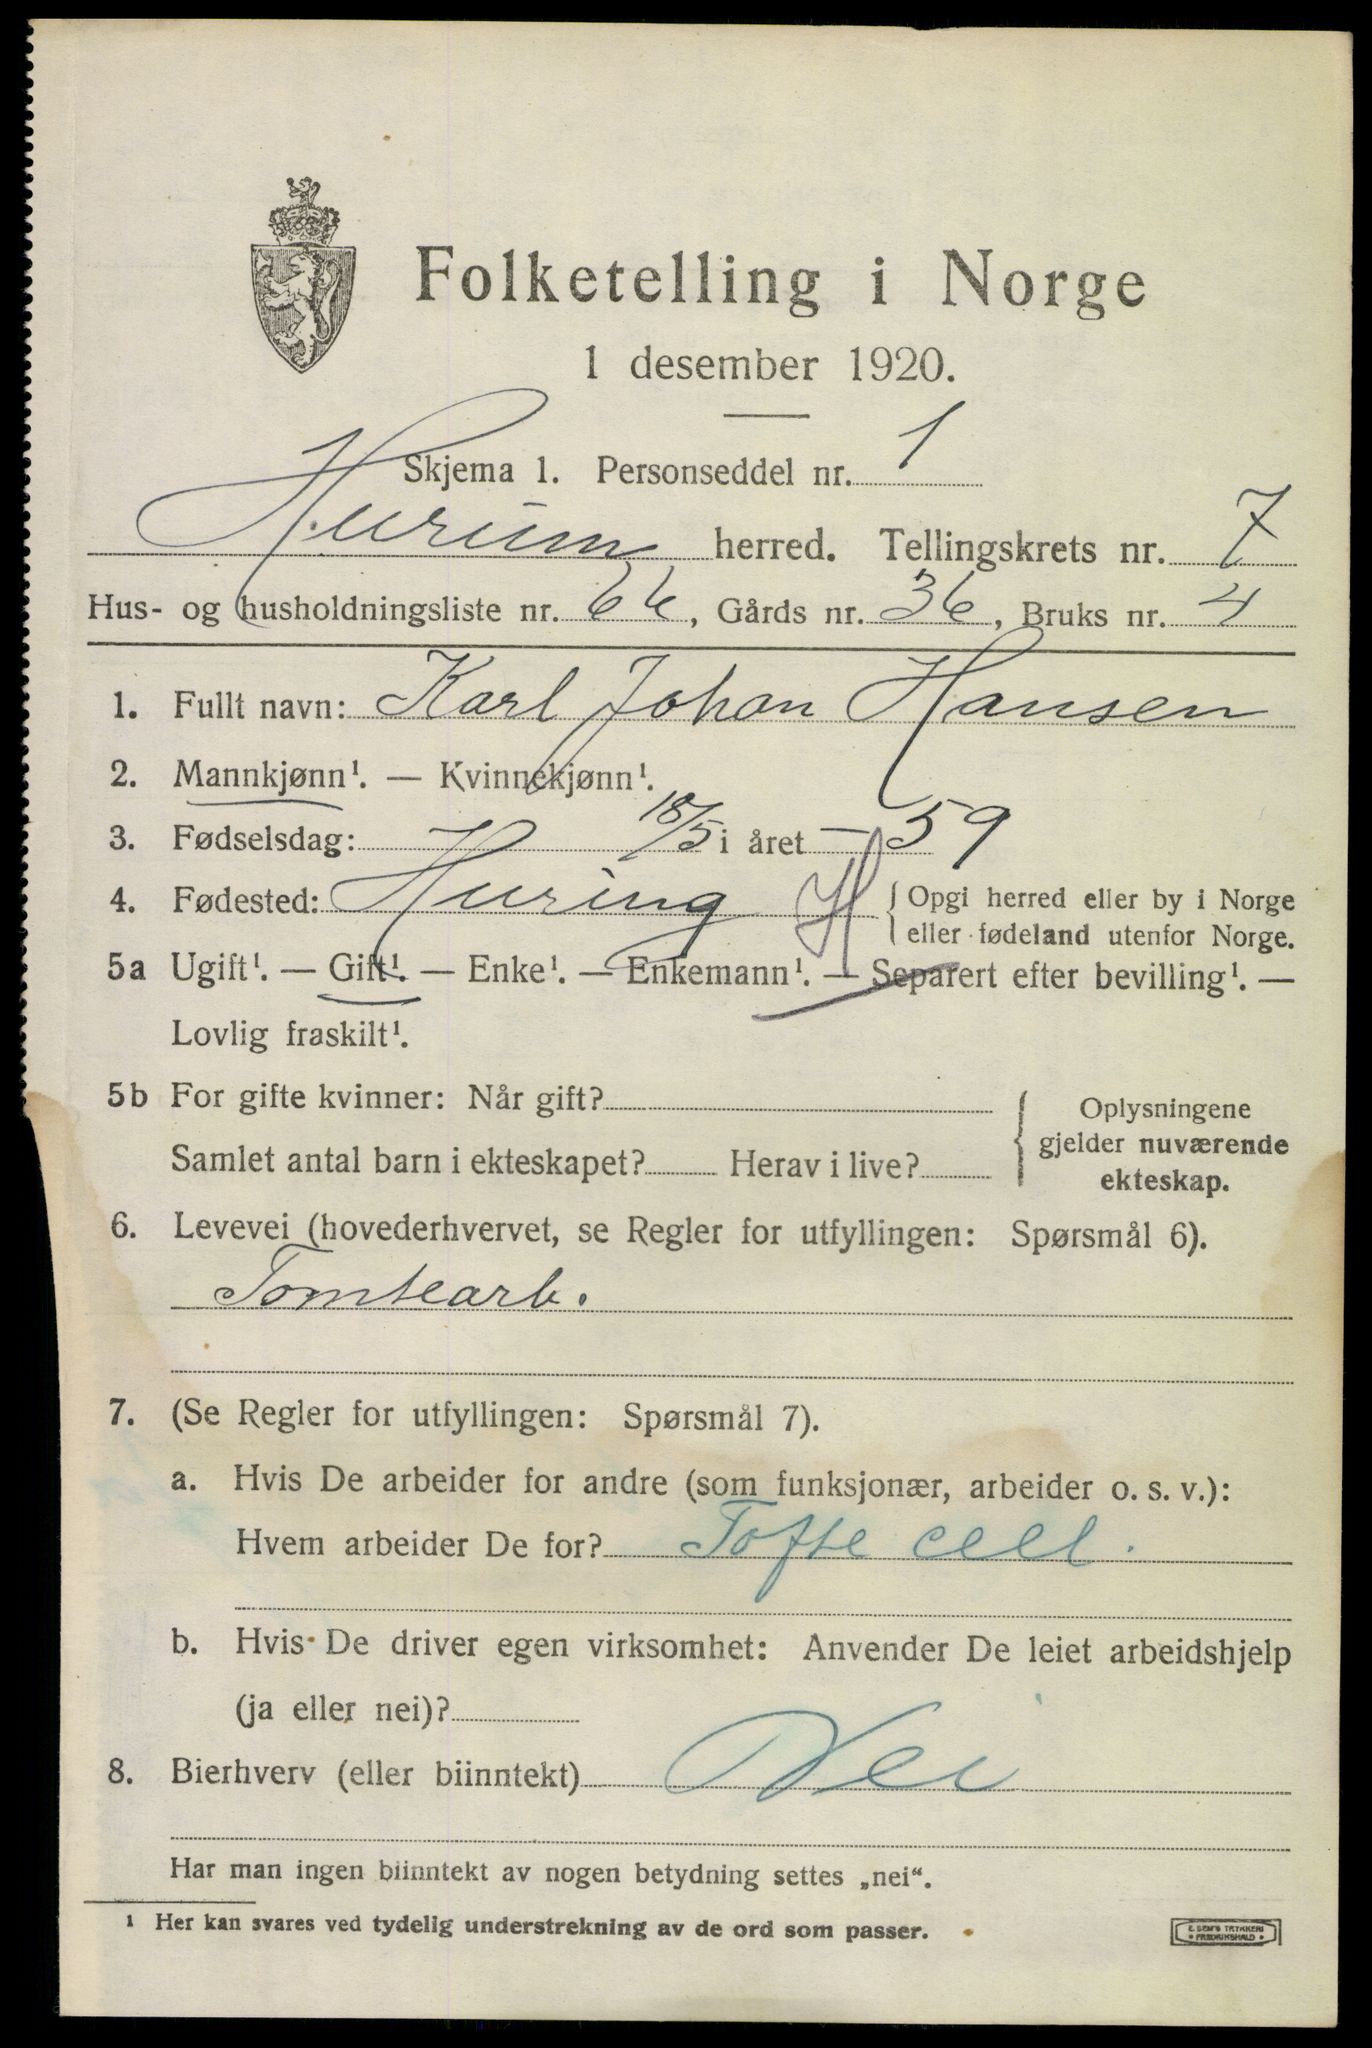 Folketelling i Norge
1 desember 1920.
Skjema 1. Personseddel nr. 1
Hurum herred. Tellingskrets nr. 7
Hus- og husholdningsliste nr. 66, Gårds nr. 36, Bruks nr. 4
1. Fullt navn: Karl Johan Hansen
2. Mannkjønn¹. — Kvinnekjønn¹.
3. Fødselsdag: 18/5 i året — 59
4. Fødested: Huring H {Opgi herred eller by i Norge
eller fødeland utenfor Norge.
5a Ugift¹. — Gift¹. — Enke¹. — Enkemann¹. — Separert efter bevilling¹. —
Lovlig fraskilt¹.
5b For gifte kvinner: Når gift?
Samlet antal barn i ekteskapet? Herav i live?
{ Oplysningene
gjelder nuværende
ekteskap.
6. Levevei (hovederhvervet, se Regler for utfyllingen: Spørsmål 6).
Tomtearb.
7. (Se Regler for utfyllingen: Spørsmål 7).
a. Hvis De arbeider for andre (som funksjonær, arbeider o. s. v.):
Hvem arbeider De for? Tofte cell.
b. Hvis De driver egen virksomhet: Anvender De leiet arbeidshjelp
(ja eller nei)?
8. Bierhverv (eller biinntekt) Nei
Har man ingen biinntekt av nogen betydning settes „nei“.
¹ Her kan svares ved tydelig understrekning av de ord som passer.
E. SEM'S TRYKKERI
• FREDRIKSHALD •